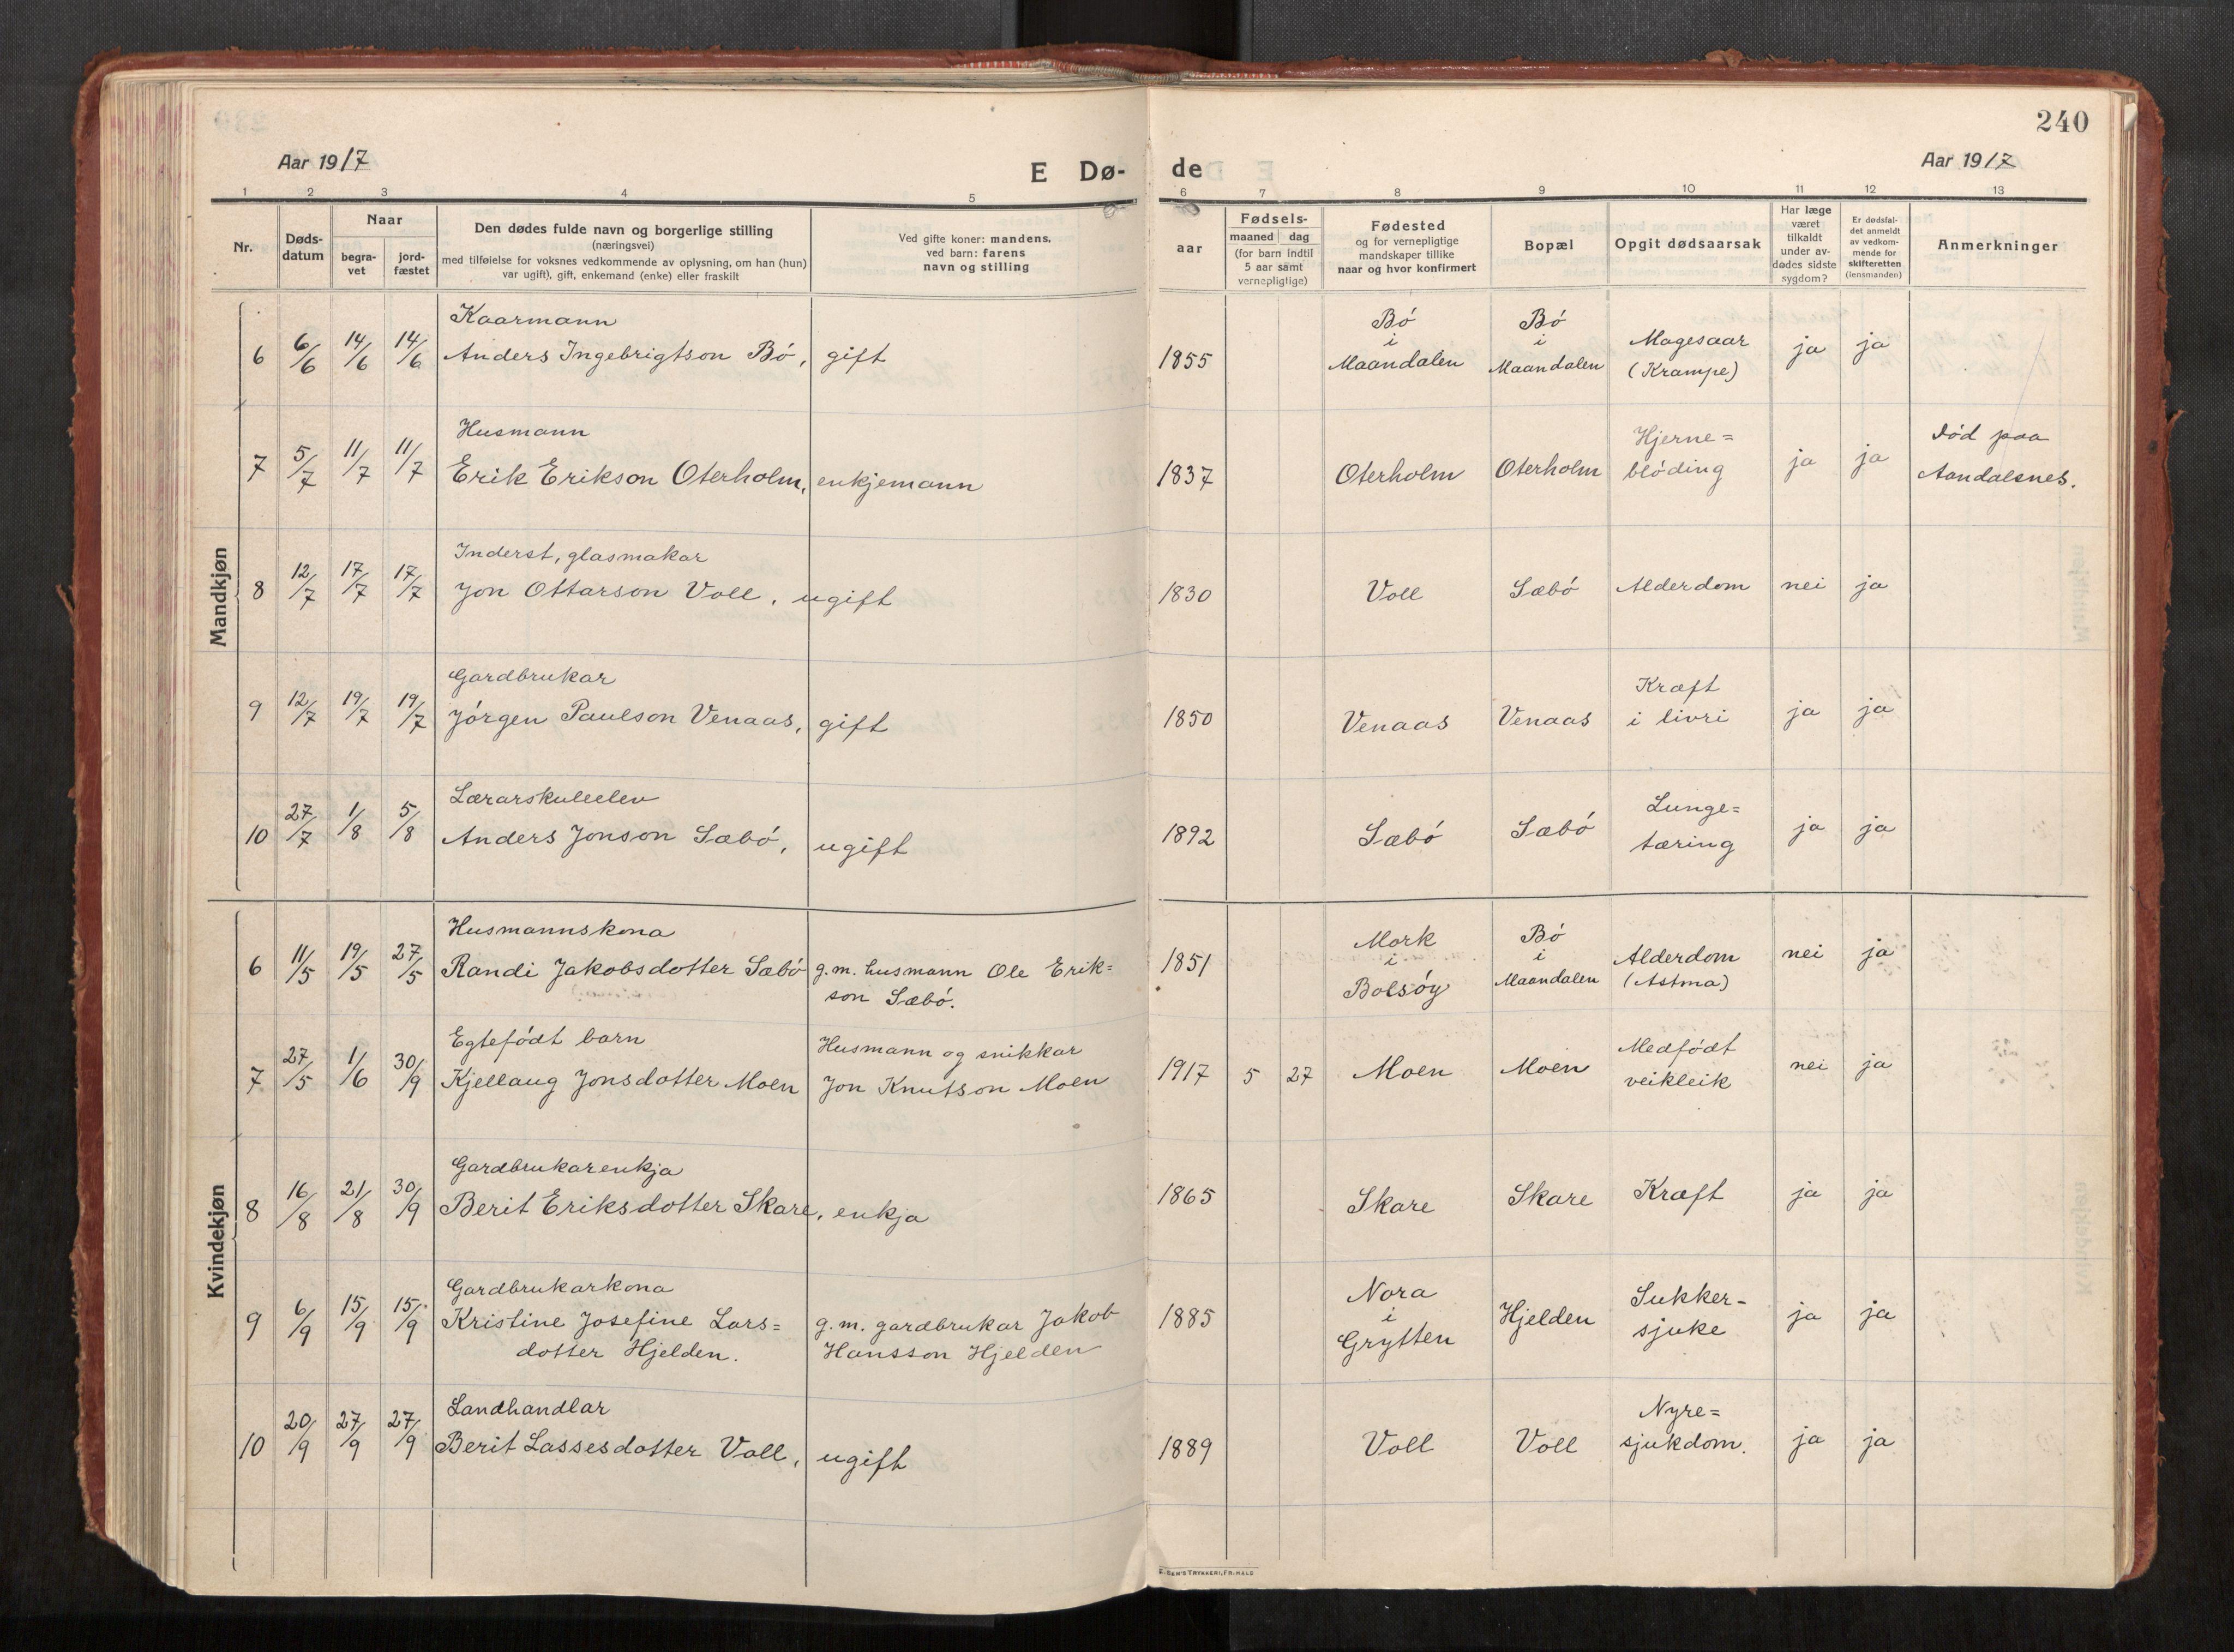 240
Aar 1917
E Dø-
de
Aar 1917
1 2 3 4 5 6 7 8 9 10 11 12 13
Nr.
Døds-
datum
Naar
begra-
vet
jord-
fæstet
Den dødes fulde navn og borgerlige stilling
(næringsvei)
med tilføielse for voksnes vedkommende av oplysning, om han (hun)
var ugift), gift, enkemand (enke) eller fraskilt
Ved gifte koner: mandens,
ved barn: farens
navn og stilling
aar
Fødsels-
maaned dag
(for barn indtil
5 aar samt
vernepligtige)
Fødested
og for vernepligtige
mandskaper tillike
naar og hvor konfirmert
Bopæl
Opgit dødsaarsak
Har læge
været
tilkaldt
under av-
dødes sidste
sygdom?
Er dødsfal-
det anmeldt
av vedkom-
mende for
skifteretten
(lensmanden)
Anmerkninger
Mandkjøn
Kaarmann
6 6/6 14/6 14/6 Anders Ingebrigtson Bó, gift 1855 Bó i Maandalen Bó i Maandalen Magesaar (Krampe) ja ja
Husmann
7 5/7 11/7 11/7 Erik Erikson Oterholm, enkjemann 1837 Oterholm Oterholm Hjerne= blóding ja ja Død paa Aandalsnes.
Inderst, glasmakar
8 12/7 17/7 17/7 Jon Ottarson Voll, ugift 1830 Voll Sæbó Alderdom nei ja
Gardbrukar
9 12/7 19/7 19/7 Jórgen Paulson Venaas, gift 1850 Venaas Venaas Kræft i livri ja ja
Lærarskuleelev
10 27/7 1/8 5/8 Anders Jonson Sæbó, ugift 1892 Sæbó Sæbó Lunge= tæring ja ja
Kvindekjøn
Husmannskona
6 11/5 19/5 27/5 Randi Jakobsdotter Sæbó g.m. husmann Ole Erik= son Sæbó. 1851 Mork i Bolsóy Bó i Maandalen Alderdom (Astma) nei ja
Egtefódt barn
7 27/5 1/6 30/9 Kjellaug Jonsdotter Moen Husmann og snikkar Jon Knutson Moen 1917 5 27 Moen Moen Medfódt veikleik nei ja
Gardbrukarenkja
8 16/8 21/8 30/9 Berit Eriksdotter Skare, enkja 1865 Skare Skare Kræft ja ja
Gardbrukarkona
9 6/9 15/9 15/9 Kristine Josefine Lars= dotter Hjelden. g.m. gardbrukar Jakob Hansson Hjelden 1885 Nora i Grytten Hjelden Sukker- sjuke ja ja
Landhandlar
10 20/9 27/9 27/9 Berit Lassesdotter Voll, ugift 1889 Voll Voll Nyre= sjukdom. ja ja